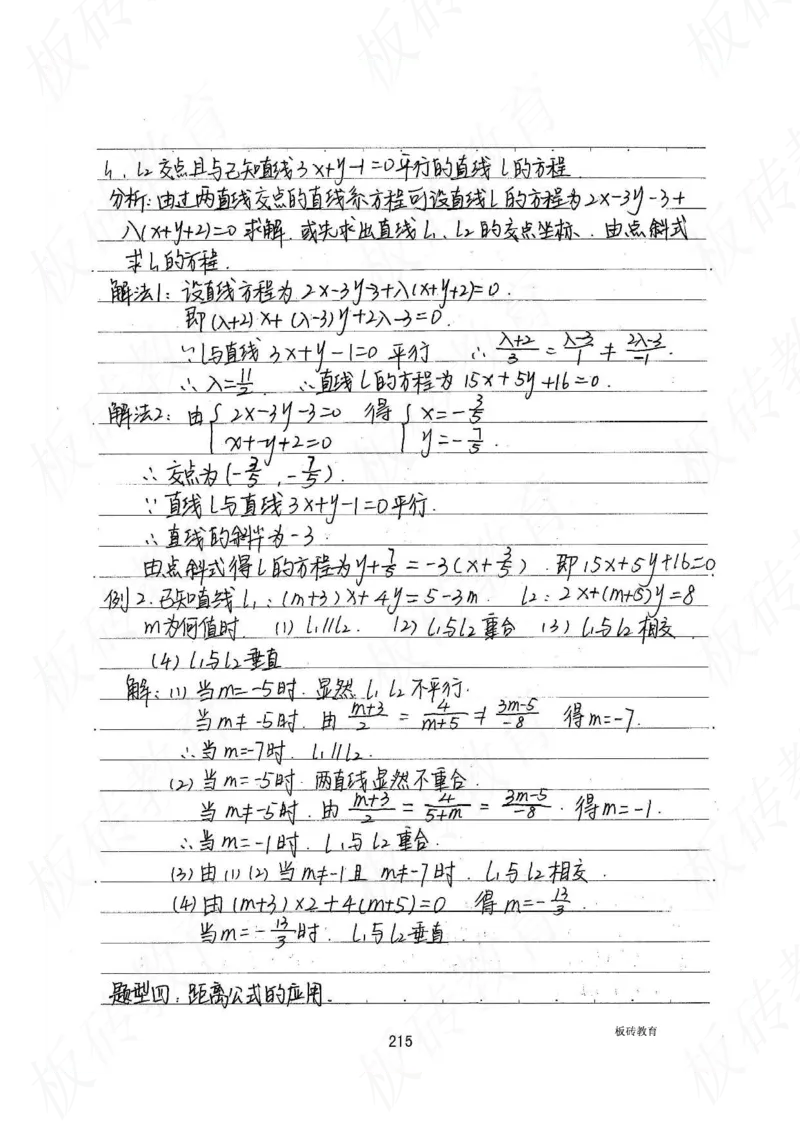 l₁、l₂交点且与已知直线3x+y-1=0平行的直线l的方程.
分析:由过两直线交点的直线系方程可设直线l的方程为2x-3y-3+
λ(x+y+2)=0求解.或先求出直线l₁、l₂的交点坐标.由点斜式
求l的方程.
解法1:设直线方程为2x-3y-3+λ(x+y+2)=0.
即(λ+2)x+(λ-3)y+2λ-3=0.
∵l与直线3x+y-1=0平行 ∴(λ+2)/3=(λ-3)/1≠(2λ-3)/-1.
∴λ=11/2. ∴直线l的方程为15x+5y+16=0.
解法2:由{2x-3y-3=0 得{x=-3/5
x+y+2=0 y=-7/5.
∴交点为(-3/5,-7/5).
∵直线l与直线3x+y-1=0平行.
∴直线的斜率为-3.
由点斜式得l的方程为y+7/5=-3(x+3/5).即15x+5y+16=0
例2.已知直线l₁:(m+3)x+4y=5-3m. l₂:2x+(m+5)y=8
m为何值时.(1)l₁//l₂.(2)l₁与l₂重合(3)l₁与l₂相交
(4)l₁与l₂垂直
解:(1)当m=-5时.显然l₁l₂不平行.
当m≠-5时.由(m+3)/2=4/(m+5)≠(3m-5)/-8 得m=-7.
∴当m=-7时.l₁//l₂.
(2)当m=-5时.两直线显然不重合.
当m≠-5时.由(m+3)/2=4/(5+m)=(3m-5)/-8.得m=-1.
∴当m=-1时.l₁与l₂重合.
(3)由(1)(2)当m≠-1且m≠-7时.l₁与l₂相交.
(4)由(m+3)×2+4(m+5)=0 得m=-13/3.
当m=-13/3时.l₁与l₂垂直.
题型四:距离公式的应用.
215
板砖教育